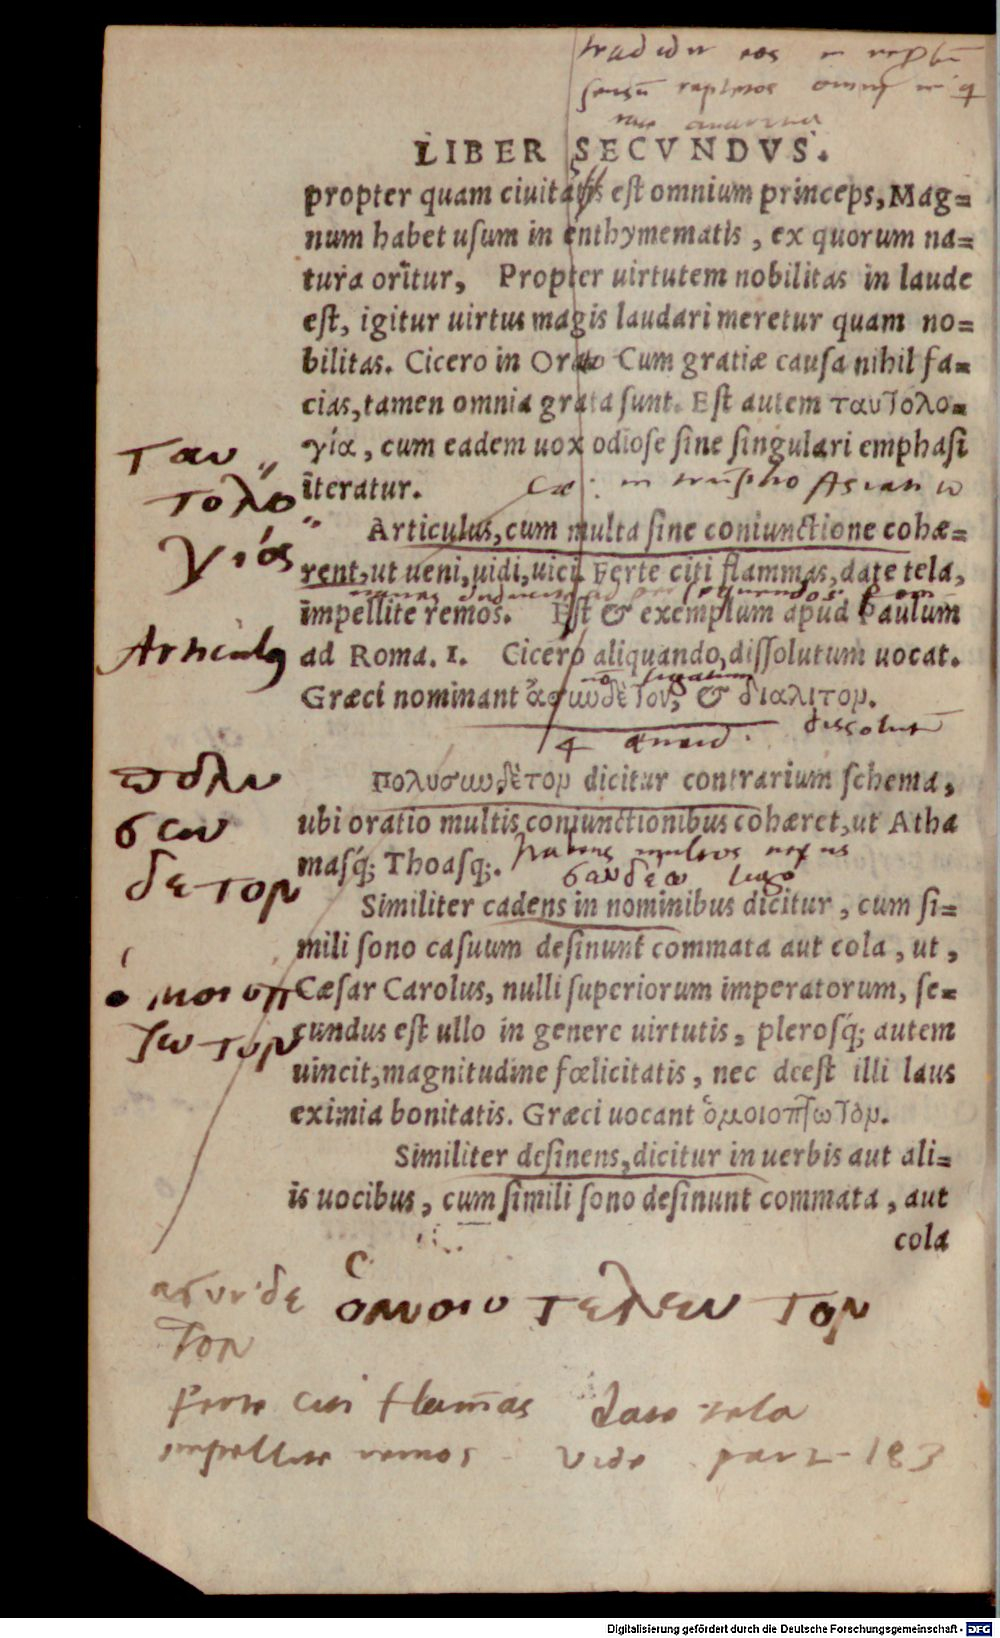 tradidit eos in
sensū
LIBER SECVNDVS.
propter quam ciuitatis est omnium princeps, Mag=
num habet usum in enthymematis, ex quorum na=
tura oritur, Propter uirtutem nobilitas in laude
est, igitur uirtus magis laudari meretur quam no=
bilitas. Cicero in Orato Cum gratiæ causa nihil fa=
cias, tamen omnia grata sunt. Est autem ταυτολο=
γία, cum eadem uox odiose sine singulari emphasi
iteratur.
Ταυ
τολο
γιας
Articulus, cum multa sine coniunctione cohæ=
rent, ut ueni, uidi, uici. Ferte citi flammas, date tela,
impellite remos. Est & exemplum apud Paulum
ad Roma. 1. Cicero aliquando, dissolutum uocat.
Articulus
Græci nominant ἀσιωδὲτον, & διαλιτον.
dissolutū
πολυ
σιων
δετον
πολυσιωδὲτον dicitur contrarium schema,
ubi oratio multis coniunctionibus cohæret, ut Atha
masq́; Thoasq́;.
habens multos nexus
ligo
Similiter cadens in nominibus dicitur, cum si=
mili sono casuum desinunt commata aut cola, ut,
Cæsar Carolus, nulli superiorum imperatorum, se=
cundus est ullo in genere uirtutis, plerosq́; autem
uincit, magnitudine fœlicitatis, nec deest illi laus
eximia bonitatis. Græci uocant ὁμοιοπτωτον.
ὁμοιοπ
τωτον
Similiter desinens, dicitur in uerbis aut ali=
is uocibus, cum simili sono desinunt commata, aut
cola
ασυνδε
τον
ὁμοιοτελευτον
ferte citi flam̄as date tela
impellite remos vide 183
Digitalisierung gefördert durch die Deutsche Forschungsgemeinschaft - DFG